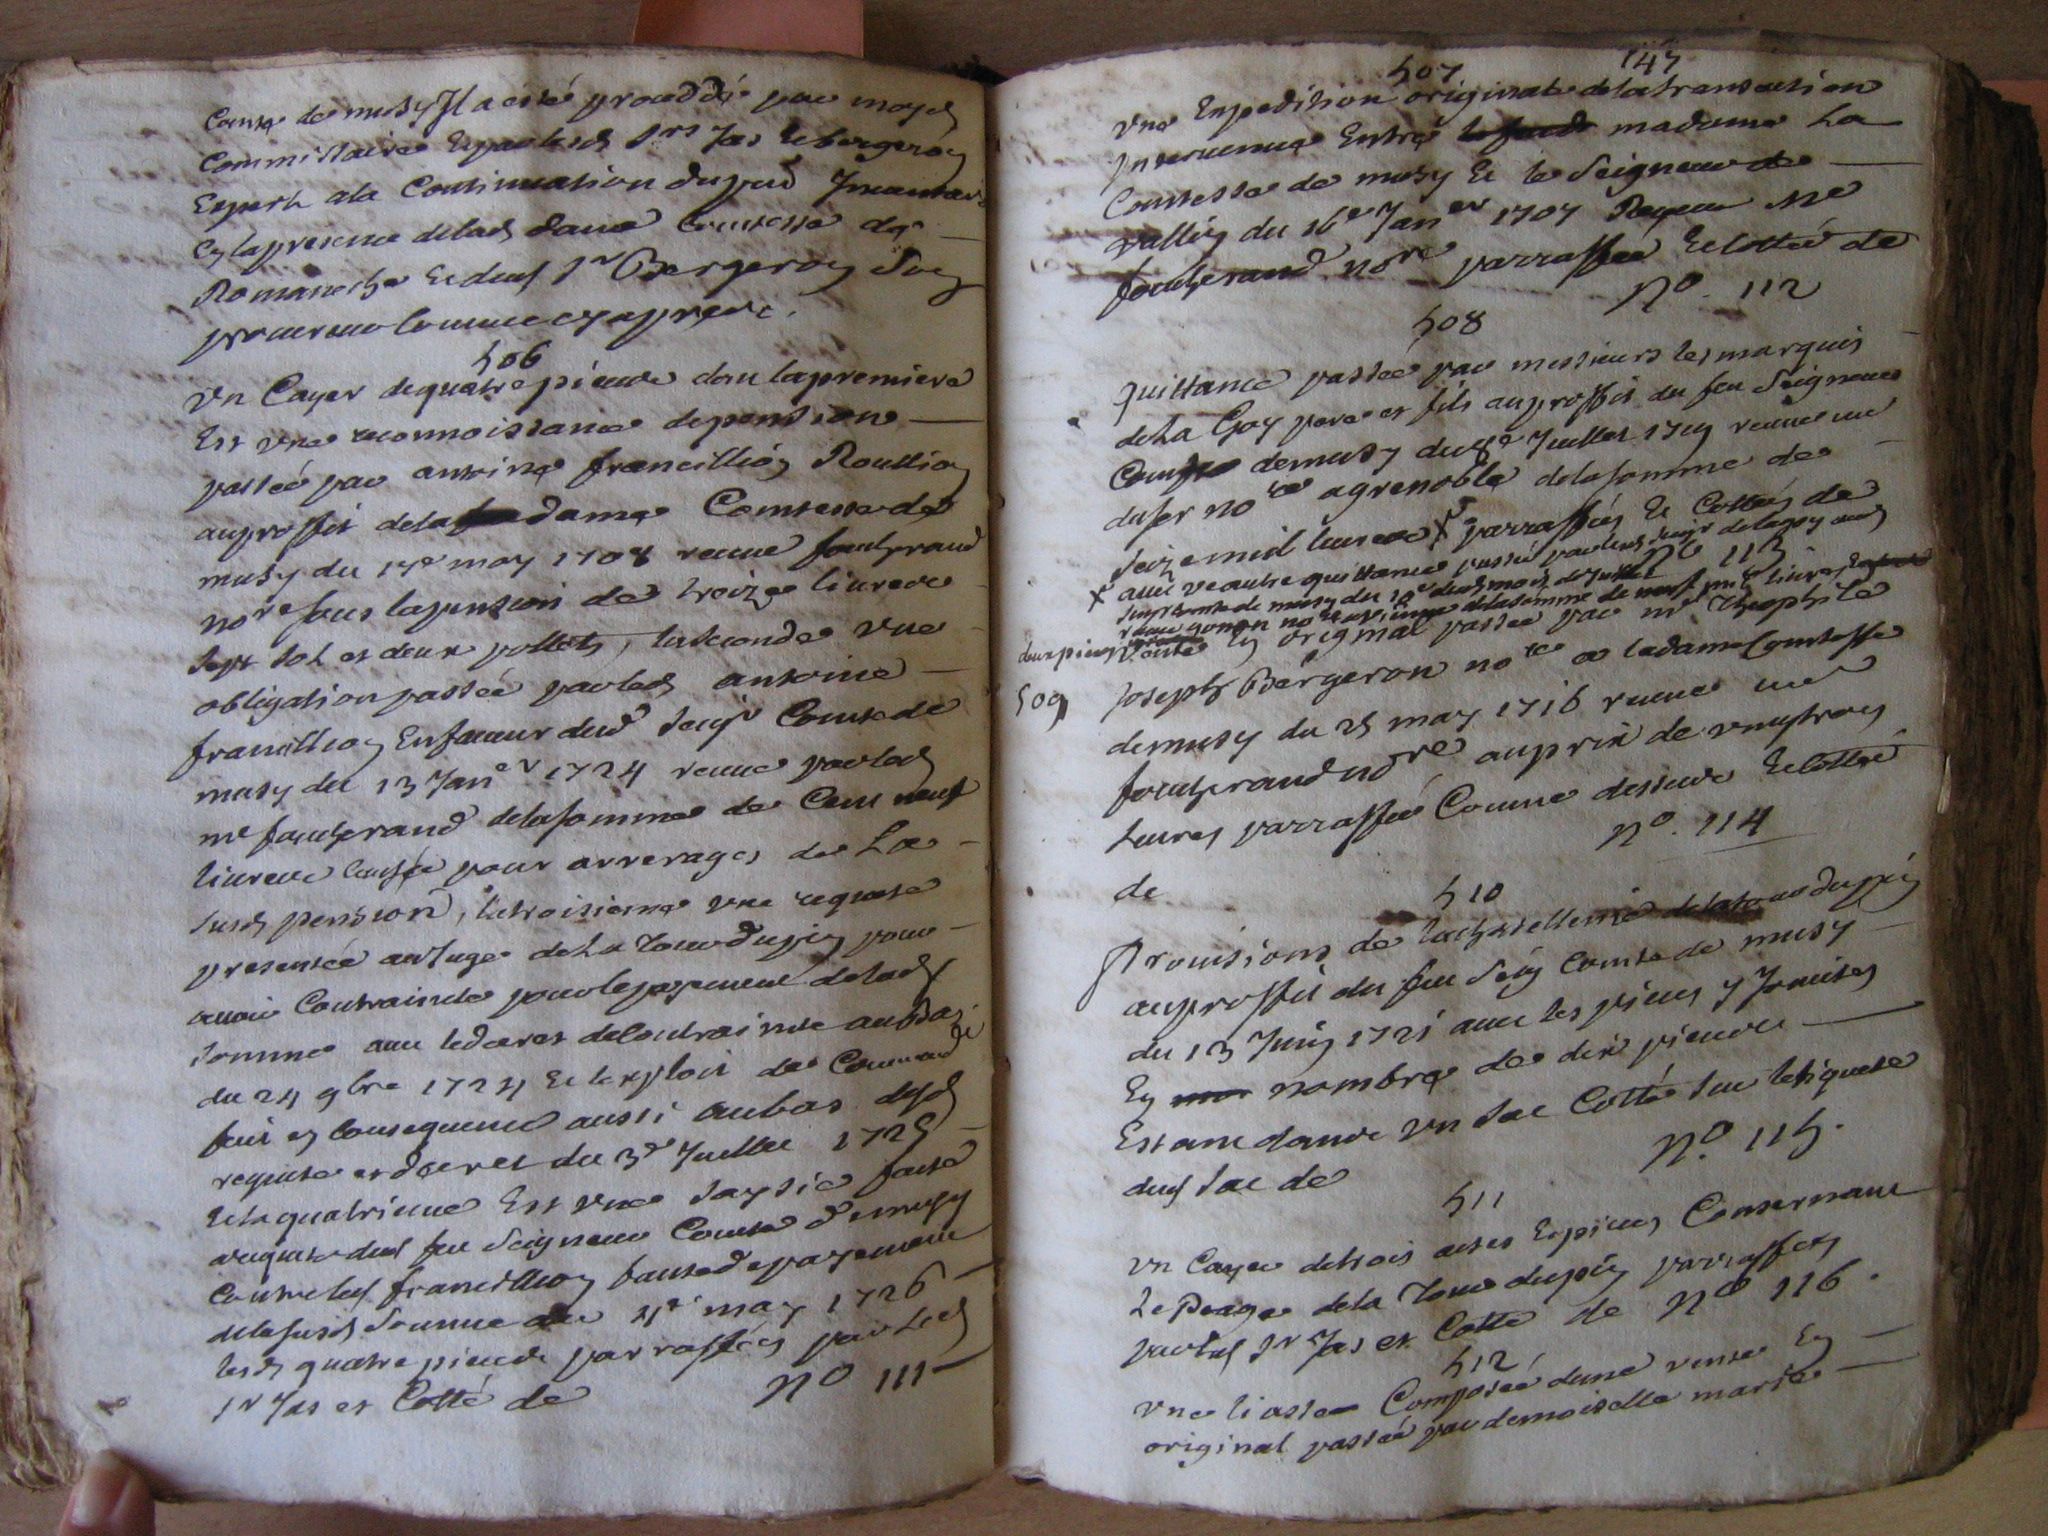 Comte de musy Il a esté proceddé par moyd
Commissaire Et par lesd Srs Jas et bergeron
Expert ala Continuation dupnt Inventaire
En la presence de lad dame Comtesse de
Romaneche Et dud Sr Bergeron Son
procureur Comme cy apres.
506
Vn Cayer de quatre pieces dont la premiere
Est vne reconnoissance de pension
passée par antoine francillion Roullion
au proffit de la dame Comtesse de
musy du 17e may 1708 receue foulherand
nore sous la pension de treize livres
sept sol et deux , la seconde vne
obligation passée par led antoine
francillion En faveur dud Seigr Comte de
musy du 13 Janer 1724 receue par led
me foulherand de la somme de Cent neuf
livres causée pour arrerages de La
susd pension, la troisieme vne requeste
presentée au Juge de La Tour du pin pour
avoir Contrainte pour le payement de lad
somme avec le decret de Contrainte au bas
du 24 9bre 1724 Et lexploit de Commandt
fait en consequence aussi au bas desd
requeste et decret du 3e Juillet 1725
Et la quatrieme Est vne saysie faite
a requeste dud feu Seigneur Comte de musy
Contre led francillion faute de payement
de la susd somme du 4e may 1726
lesd quatre pieces parraffées par Led
Sr Jas et Cotté de No 111
507 147
Vne Expedition originale de la transaction
Intervenue Entre madame La
Comtesse de musy Et le Seigneur de
vallin du 16e Janer 1707 Receue Me
foulherand nore parraffée Et cottée de
No. 112
508
quittance passée par messieurs les marquis
de La Goy pere et fils au proffit du feu Seigneur
Comte de musy du 8e Juillet 1719 receue me
duser nore a grenoble de la somme de
seize mil livres X parraffées Et Cottées de
No 113
X avec vne autre quittance passée par led Seigr de lagoy aud
Seigr Comte de musy du 10e dud mois de Juillet
receue gonon nore a vienne de la somme de neuf mil livres
deux pieces
509 Vente En original passée par me Theophile
Joseph Bergeron nore a la dame Comtesse
de musy du 25 may 1716 receue me
foulherand nore au prix de vingt trois
Livres parraffée Comme dessus Et cottée
de No. 114
510
Provisions de la chastellenie de la tour du pin
au proffit du feu Seigr Comte de musy
du 13 Juin 1721 avec les pieces y Jointes
En nombre de dix pieces
Estant dans Vn sac Cotté sur letiquete
dud sac de No. 115.
511
Vn Cayer de trois actes En pieces Consernant
Le Peage de la Tour du pin parraffées
par led Sr Jas et Cotté de No 116.
512
Vne liasse Composée dune vente En
original passée par demoiselle marie